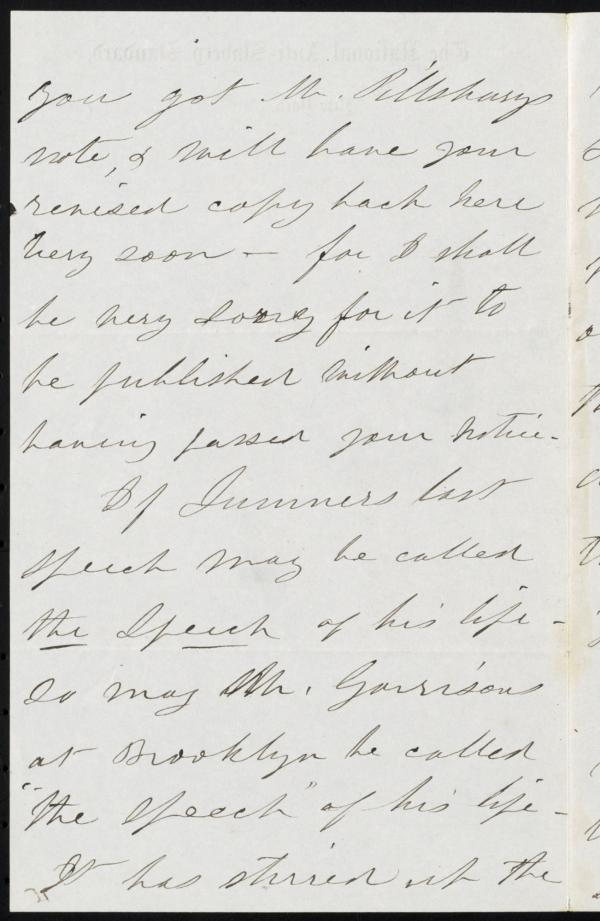 you got Mr. Pillsburys
note, & will have your
revised copy back here
very soon – for I shall
be very sorry for it to
be published without
having passed your notice –
If Sumners last
speech may be called
the Speech of his life –
so may Mr. Garrisons
at Brooklyn be called
"the Speech" of his life –
It has stirred up the